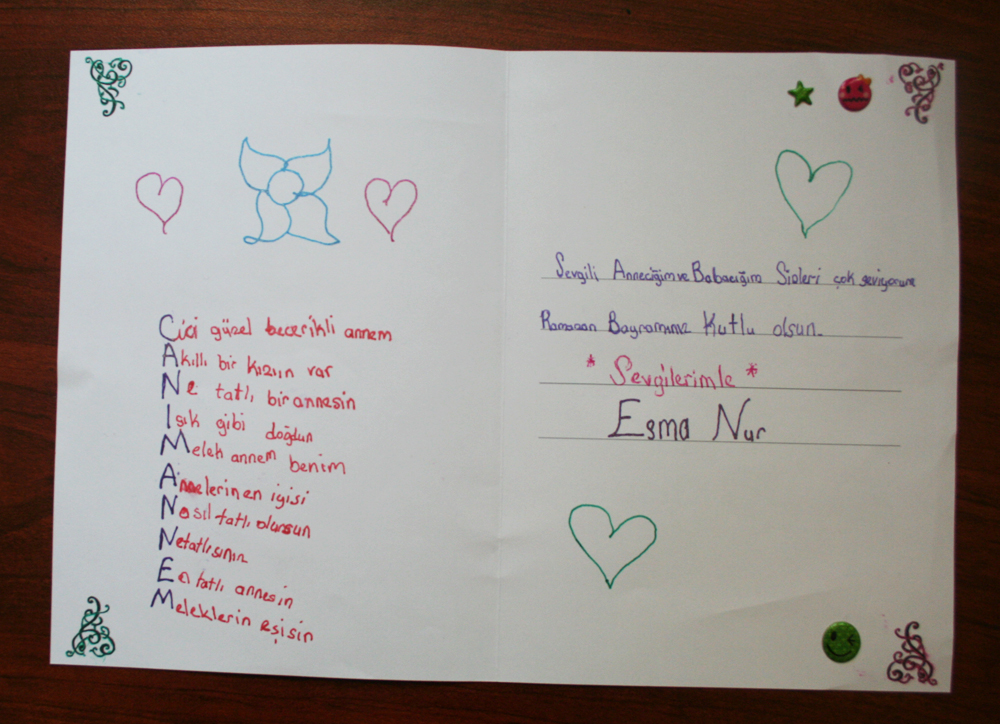 Cici güzel becerikli annem
Akıllı bir kızıın var
Ne tatlı bir annesin
Işık gibi doğdun
Melek annem benim
Annelerin en iyisi
Nasıl tatlı olursun
Netatlısının
En tatlı annesin
Meleklerin eşisin
Sevgili Anneciğim ve Babacığım Sizleri çok seviyorum
Ramazan Bayramınız Kutlu olsun.
* Sevgilerimle *
Esma Nur